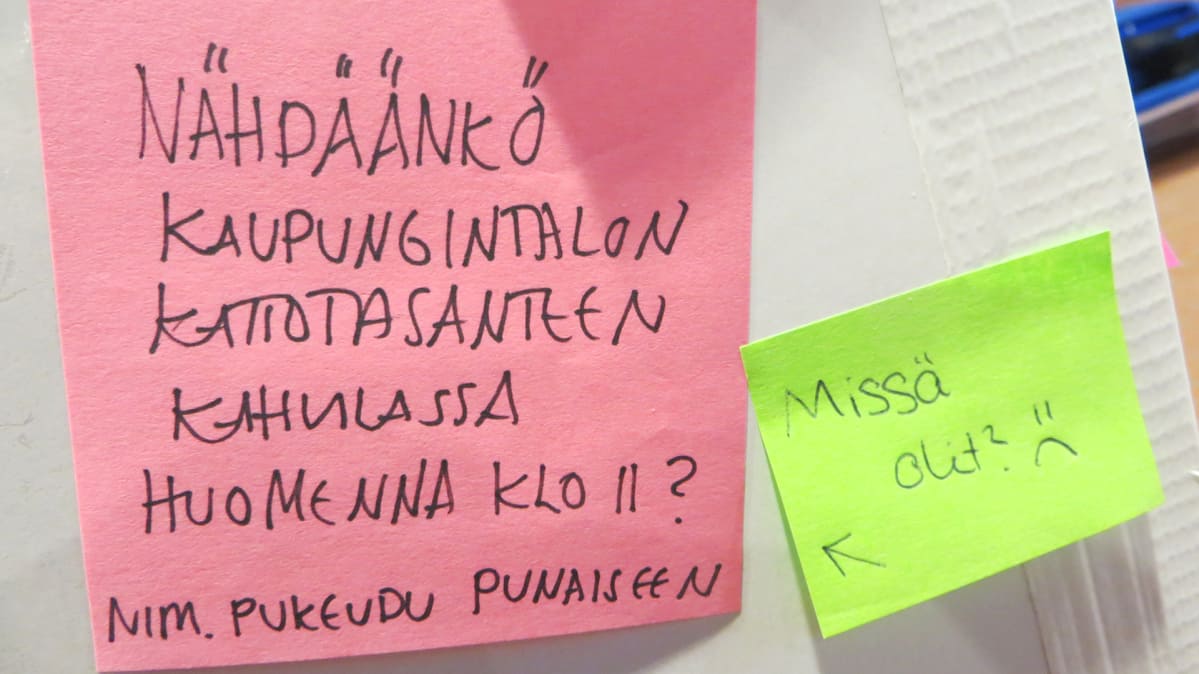 NÄHDÄÄNKÖ
KAUPUNGINTALON
KATTOTASANTEEN
KAHVILASSA
HUOMENNA KLO 11?
NIM. PUKEUDU PUNAISEEN
Missä
olit? :(